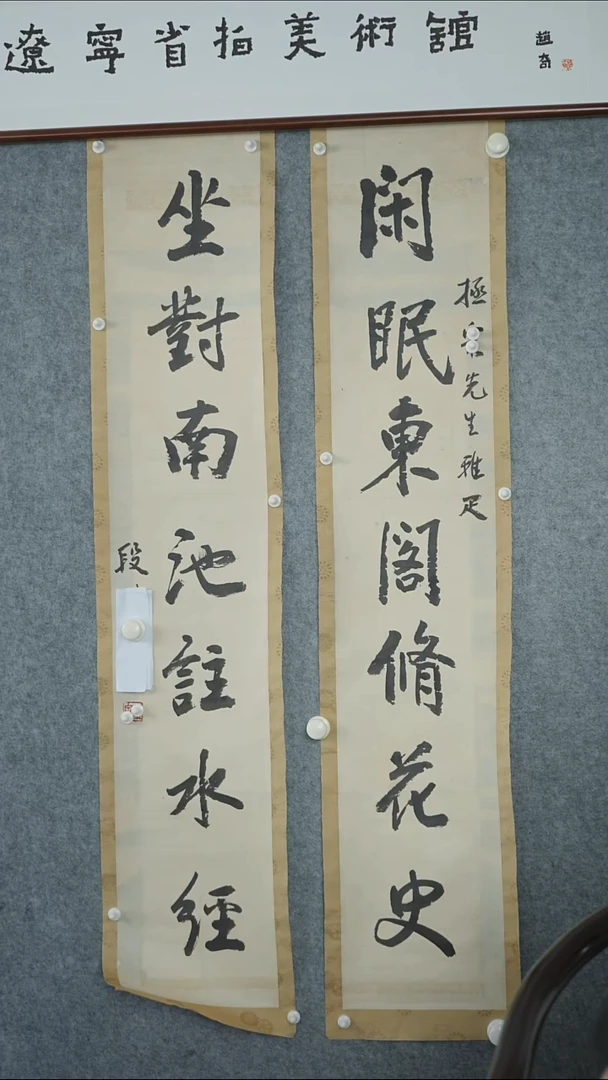 遼寧省拍美術舘
趙奇
閑眠東閣脩花史
極 先生雅疋
坐對南池註水經
段